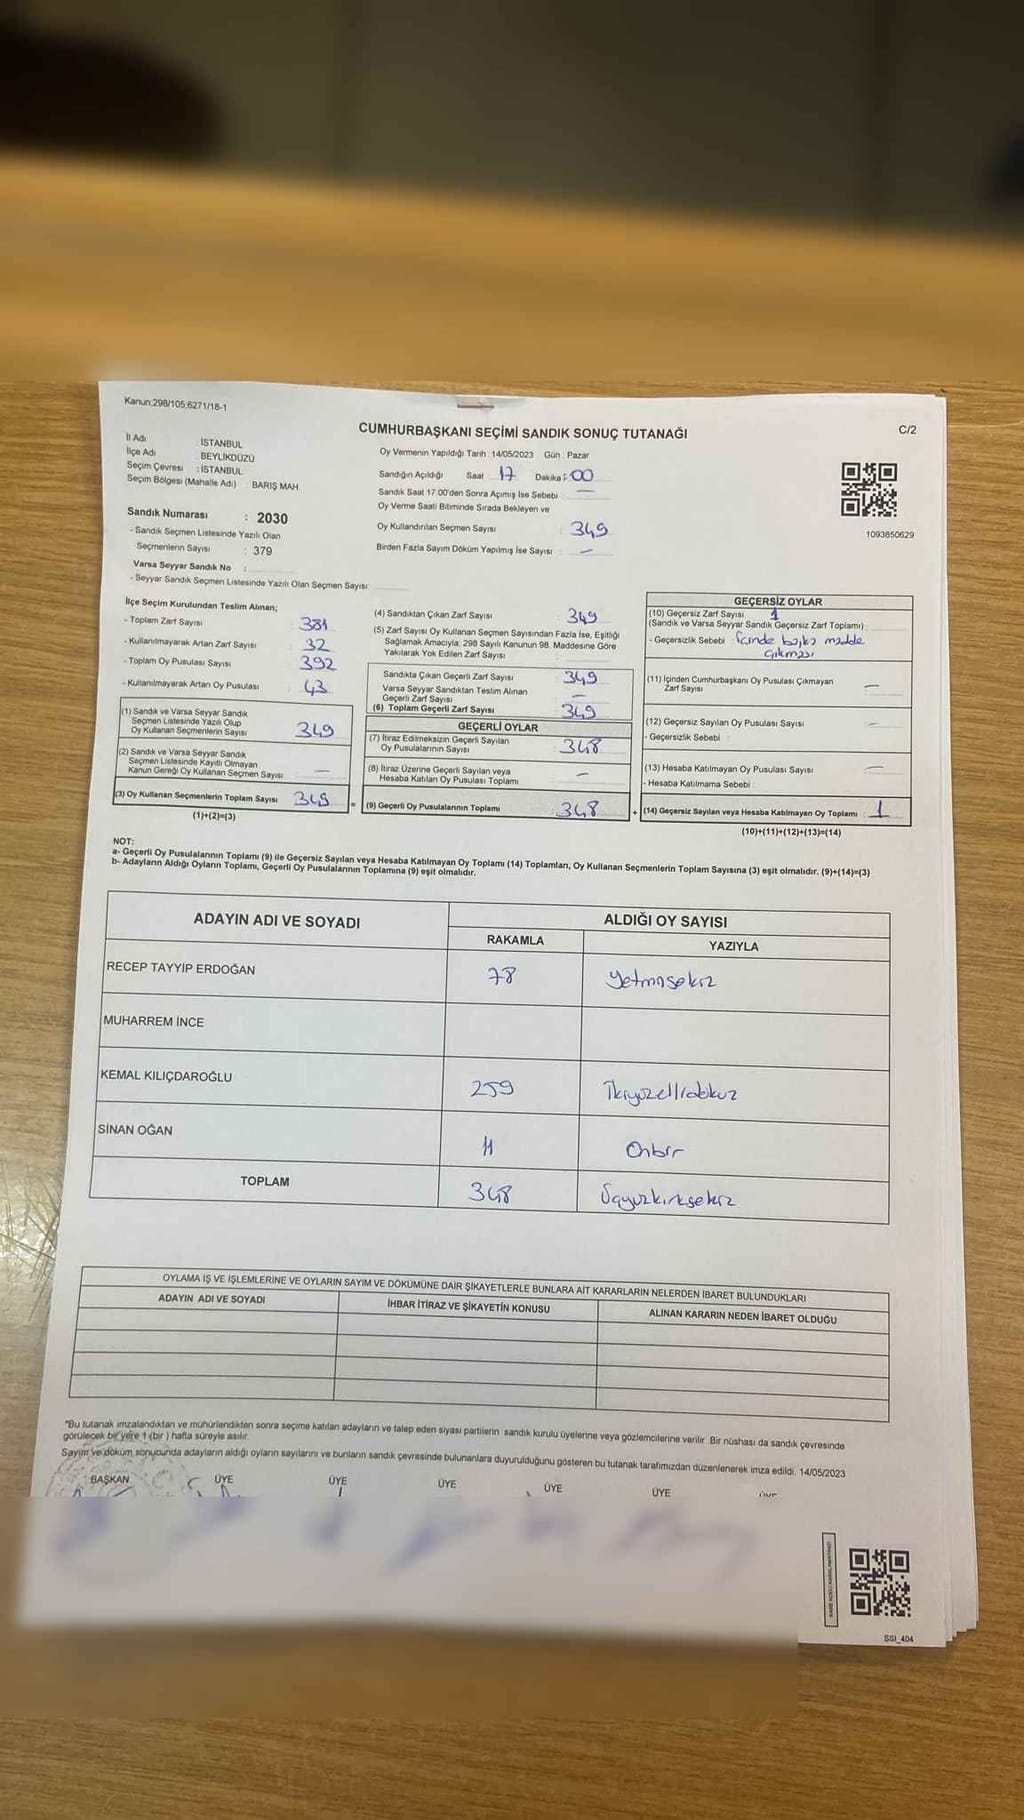 Kanun:298/105,6271/18-1
C/2
CUMHURBAŞKANI SEÇİMİ SANDIK SONUÇ TUTANAĞI
İl Adı : İSTANBUL
İlçe Adı BEYLİKDÜZÜ
Seçim Çevresi : İSTANBUL
Seçim Bölgesi (Mahalle Adı) BARIŞ MAH.
Sandık Numarası : 2030
- Sandık Seçmen Listesinde Yazılı Olan
Seçmenlerin Sayısı : 379
Varsa Seyyar Sandık No :
- Seyyar Sandık Seçmen Listesinde Yazılı Olan Seçmen Sayısı:
Oy Vermenin Yapıldığı Tarih : 14/05/2023 Gün : Pazar
Sandığın Açıldığı Saat 17 Dakika : 00
Sandık Saat 17:00'den Sonra Açımış İse Sebebi : —
Oy Verme Saati Bitiminde Sırada Bekleyen ve
Oy Kullandırılan Seçmen Sayısı : 349
Birden Fazla Sayım Döküm Yapılmış İse Sayısı : —
1093850629
İlçe Seçim Kurulundan Teslim Alınan;
- Toplam Zarf Sayısı 381
- Kullanılmayarak Artan Zarf Sayısı 32
- Toplam Oy Pusulası Sayısı 392
- Kullanılmayarak Artan Oy Pusulası 43
(1) Sandık ve Varsa Seyyar Sandık
Seçmen Listesinde Yazılı Olup
Oy Kullanan Seçmenlerin Sayısı 349
(2) Sandık ve Varsa Seyyar Sandık
Seçmen Listesinde Kayıtlı Olmayan
Kanun Gereği Oy Kullanan Seçmen Sayısı —
(3) Oy Kullanan Seçmenlerin Toplam Sayısı 349
(1)+(2)=(3)
(4) Sandıktan Çıkan Zarf Sayısı : 349
(5) Zarf Sayısı Oy Kullanan Seçmen Sayısından Fazla İse, Eşitliği
Sağlamak Amacıyla; 298 Sayılı Kanunun 98. Maddesine Göre
Yakılarak Yok Edilen Zarf Sayısı :
Sandıkta Çıkan Geçerli Zarf Sayısı : 349
Varsa Seyyar Sandıktan Teslim Alınan
Geçerli Zarf Sayısı : —
(6) Toplam Geçerli Zarf Sayısı : 349
GEÇERLİ OYLAR
(7) İtiraz Edilmeksizin Geçerli Sayılan
Oy Pusulalarının Sayısı : 348
(8) İtiraz Üzerine Geçerli Sayılan veya
Hesaba Katılan Oy Pusulası Toplamı : —
= (9) Geçerli Oy Pusulalarının Toplamı : 348
GEÇERSİZ OYLAR
(10) Geçersiz Zarf Sayısı 1
(Sandık ve Varsa Seyyar Sandık Geçersiz Zarf Toplamı) :
- Geçersizlik Sebebi : İçinde başka madde
çıkması
(11) İçinden Cumhurbaşkanı Oy Pusulası Çıkmayan
Zarf Sayısı : —
(12) Geçersiz Sayılan Oy Pusulası Sayısı : —
- Geçersizlik Sebebi :
(13) Hesaba Katılmayan Oy Pusulası Sayısı : —
- Hesaba Katılmama Sebebi :
+ (14) Geçersiz Sayılan veya Hesaba Katılmayan Oy Toplamı : 1
(10)+(11)+(12)+(13)=(14)
NOT:
a- Geçerli Oy Pusulalarının Toplamı (9) ile Geçersiz Sayılan veya Hesaba Katılmayan Oy Toplamı (14) Toplamları, Oy Kullanan Seçmenlerin Toplam Sayısına (3) eşit olmalıdır. (9)+(14)=(3)
b- Adayların Aldığı Oyların Toplamı, Geçerli Oy Pusulalarının Toplamına (9) eşit olmalıdır.
ADAYIN ADI VE SOYADI ALDIĞI OY SAYISI
RAKAMLA YAZIYLA
RECEP TAYYİP ERDOĞAN 78 Yetmişsekiz
MUHARREM İNCE
KEMAL KILIÇDAROĞLU 259 İkiyüzellidokuz
SİNAN OĞAN 11 Onbir
TOPLAM 348 Üçyüzkırksekiz
OYLAMA İŞ VE İŞLEMLERİNE VE OYLARIN SAYIM VE DÖKÜMÜNE DAİR ŞİKAYETLERLE BUNLARA AİT KARARLARIN NELERDEN İBARET BULUNDUKLARI
ADAYIN ADI VE SOYADI İHBAR İTİRAZ VE ŞİKAYETİN KONUSU ALINAN KARARIN NEDEN İBARET OLDUĞU
*Bu tutanak imzalandıktan ve mühürlendikten sonra seçime katılan adayların ve talep eden siyasi partilerin sandık kurulu üyelerine veya gözlemcilerine verilir. Bir nüshası da sandık çevresinde
görülecek bir yere 1 (bir ) hafta süreyle asılır.
Sayım ve döküm sonucunda adayların aldığı oyların sayılarını ve bunların sandık çevresinde bulunanlara duyurulduğunu gösteren bu tutanak tarafımızdan düzenlenerek imza edildi. 14/05/2023
BAŞKAN ÜYE ÜYE ÜYE ÜYE ÜYE
SSI_404